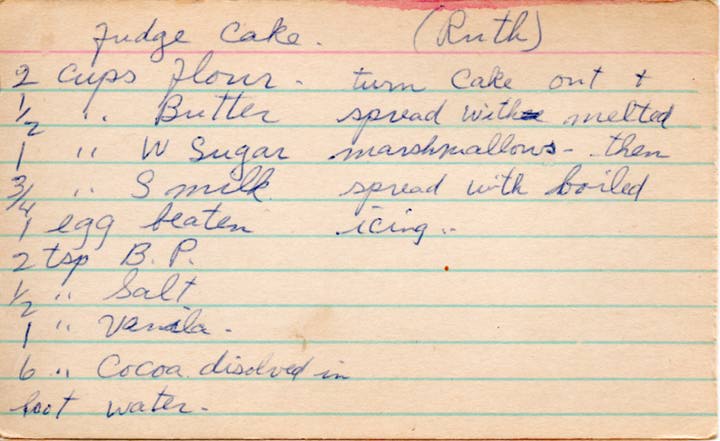 Fudge Cake. (Ruth)
2 cups flour - turn cake out +
1/2 " Butter spread with melted
1 " W Sugar marshmallows - then
3/4 " S milk spread with boiled
1 egg beaten icing ..
2 tsp B. P.
1/2 " Salt
1 " Vanila -
6 " Cocoa disolved in
hoot water -